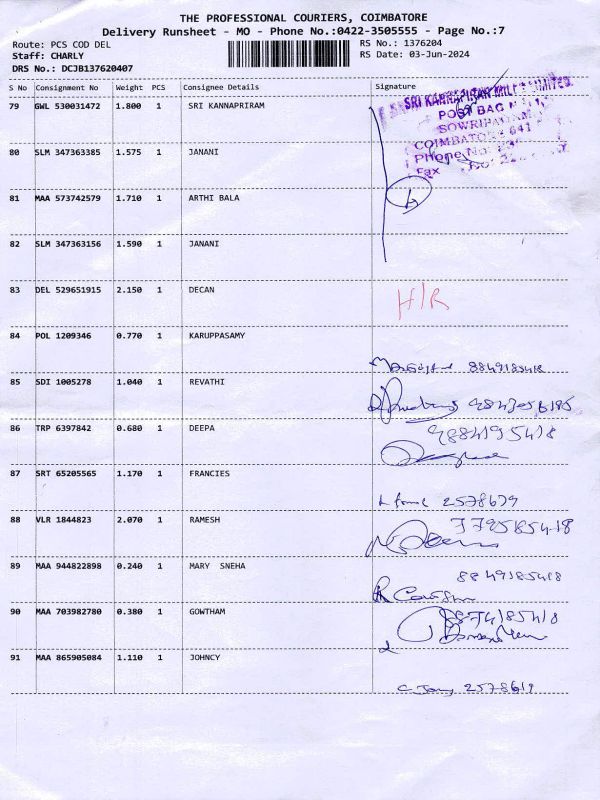 THE PROFESSIONAL COURIERS, COIMBATORE
Delivery Runsheet - MO - Phone No.:0422-3505555 - Page No.:7
Route: PCS COD DEL
RS No.: 1376204
Staff: CHARLY
RS Date: 03-Jun-2024
DRS No.: DCJB137620407
S No Consignment No Weight PCS Consignee Details Signature
79 GWL 530031472 1.800 1 SRI KANNAPRIRAM
80 SLM 347363385 1.575 1 JANANI
81 MAA 573742579 1.710 1 ARTHI BALA
82 SLM 347363156 1.590 1 JANANI
83 DEL 529651915 2.150 1 DECAN H/R
84 POL 1209346 0.770 1 KARUPPASAMY
85 SDI 1005278 1.040 1 REVATHI
86 TRP 6397842 0.680 1 DEEPA
87 SRT 65205565 1.170 1 FRANCIES
88 VLR 1844823 2.070 1 RAMESH
89 MAA 944822898 0.240 1 MARY SNEHA
90 MAA 703982780 0.380 1 GOWTHAM
91 MAA 865905084 1.110 1 JOHNCY
SRI
POST BAG
COIMBATORE 641
Phone No:
Fax